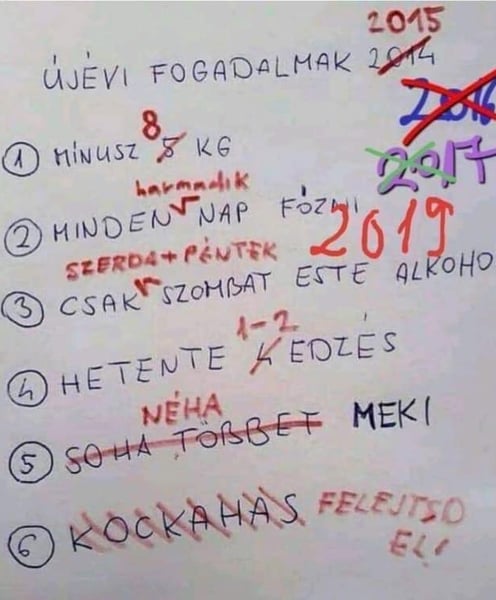 2015
ÚJÉVI FOGADALMAK 2014
2016
8
① MÍNUSZ 5 KG
2017
harmadik
② MINDEN NAP FŐZNI
2019
SZERDA + PÉNTEK
③ CSAK SZOMBAT ESTE ALKOHO
1-2
④ HETENTE 4 EDZÉS
NÉHA
⑤ SOHA TÖBBET MEKI
⑥ KOCKAHAS FELEJTSD
EL!